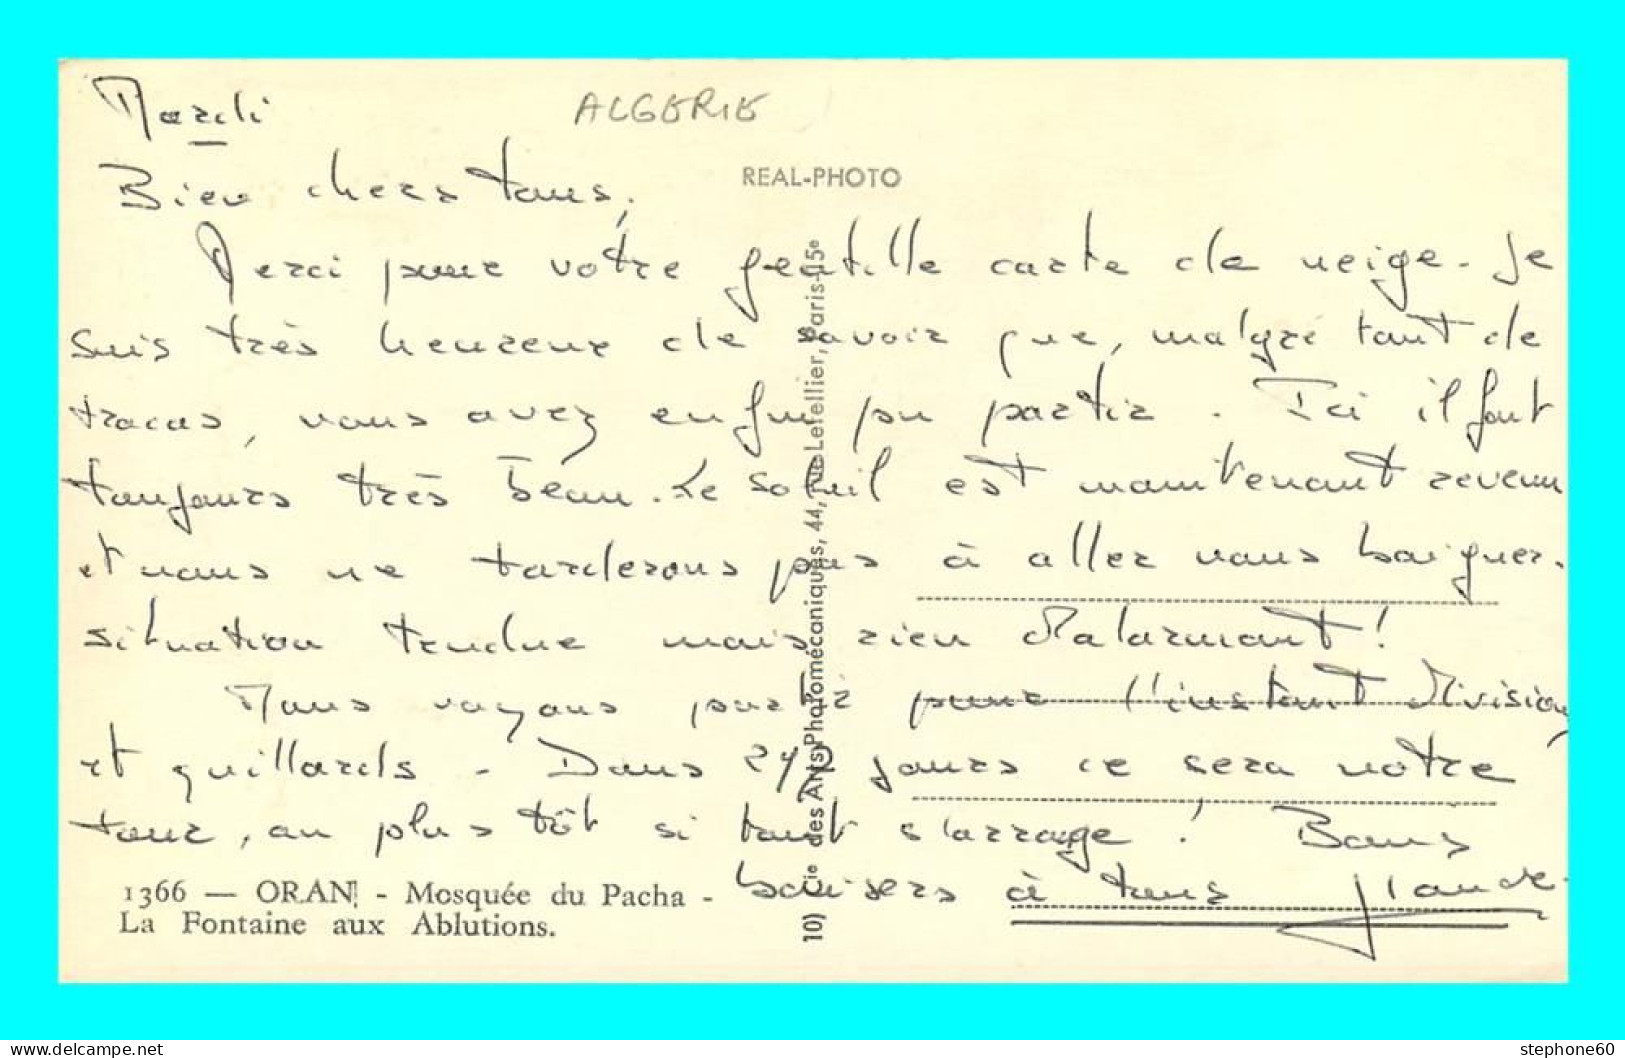 Mardi
ALGERIE
REAL-PHOTO
Bien chers tous,
Merci pour votre gentille carte de neige. Je
suis très heureux de savoir que, malgré tant de
tracas, vous avez enfin pu partir. Ici il fait
toujours très beau. Le soleil est maintenant revenu
et nous ne tarderons pas à aller nous baigner.
situation tendue mais rien d'alarmant!
Nous voyons partir pour l'instant Division
et quillards - Dans jours ce sera notre
tour, au plus tôt si tout s'arrange! Bons
baisers à tous
1366 — ORAN - Mosquée du Pacha -
La Fontaine aux Ablutions.
10) Cie des Arts Photomécaniques, 44, rue Letellier, Paris-15e
delcampe.net
stephone60